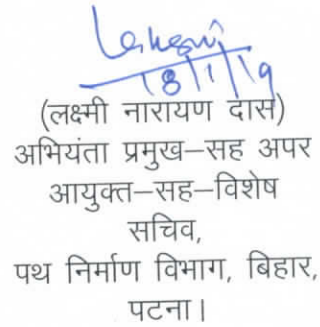 18/1/19
(लक्ष्मी नारायण दास)
अभियंता प्रमुख–सह अपर
आयुक्त–सह–विशेष
सचिव,
पथ निर्माण विभाग, बिहार,
पटना।